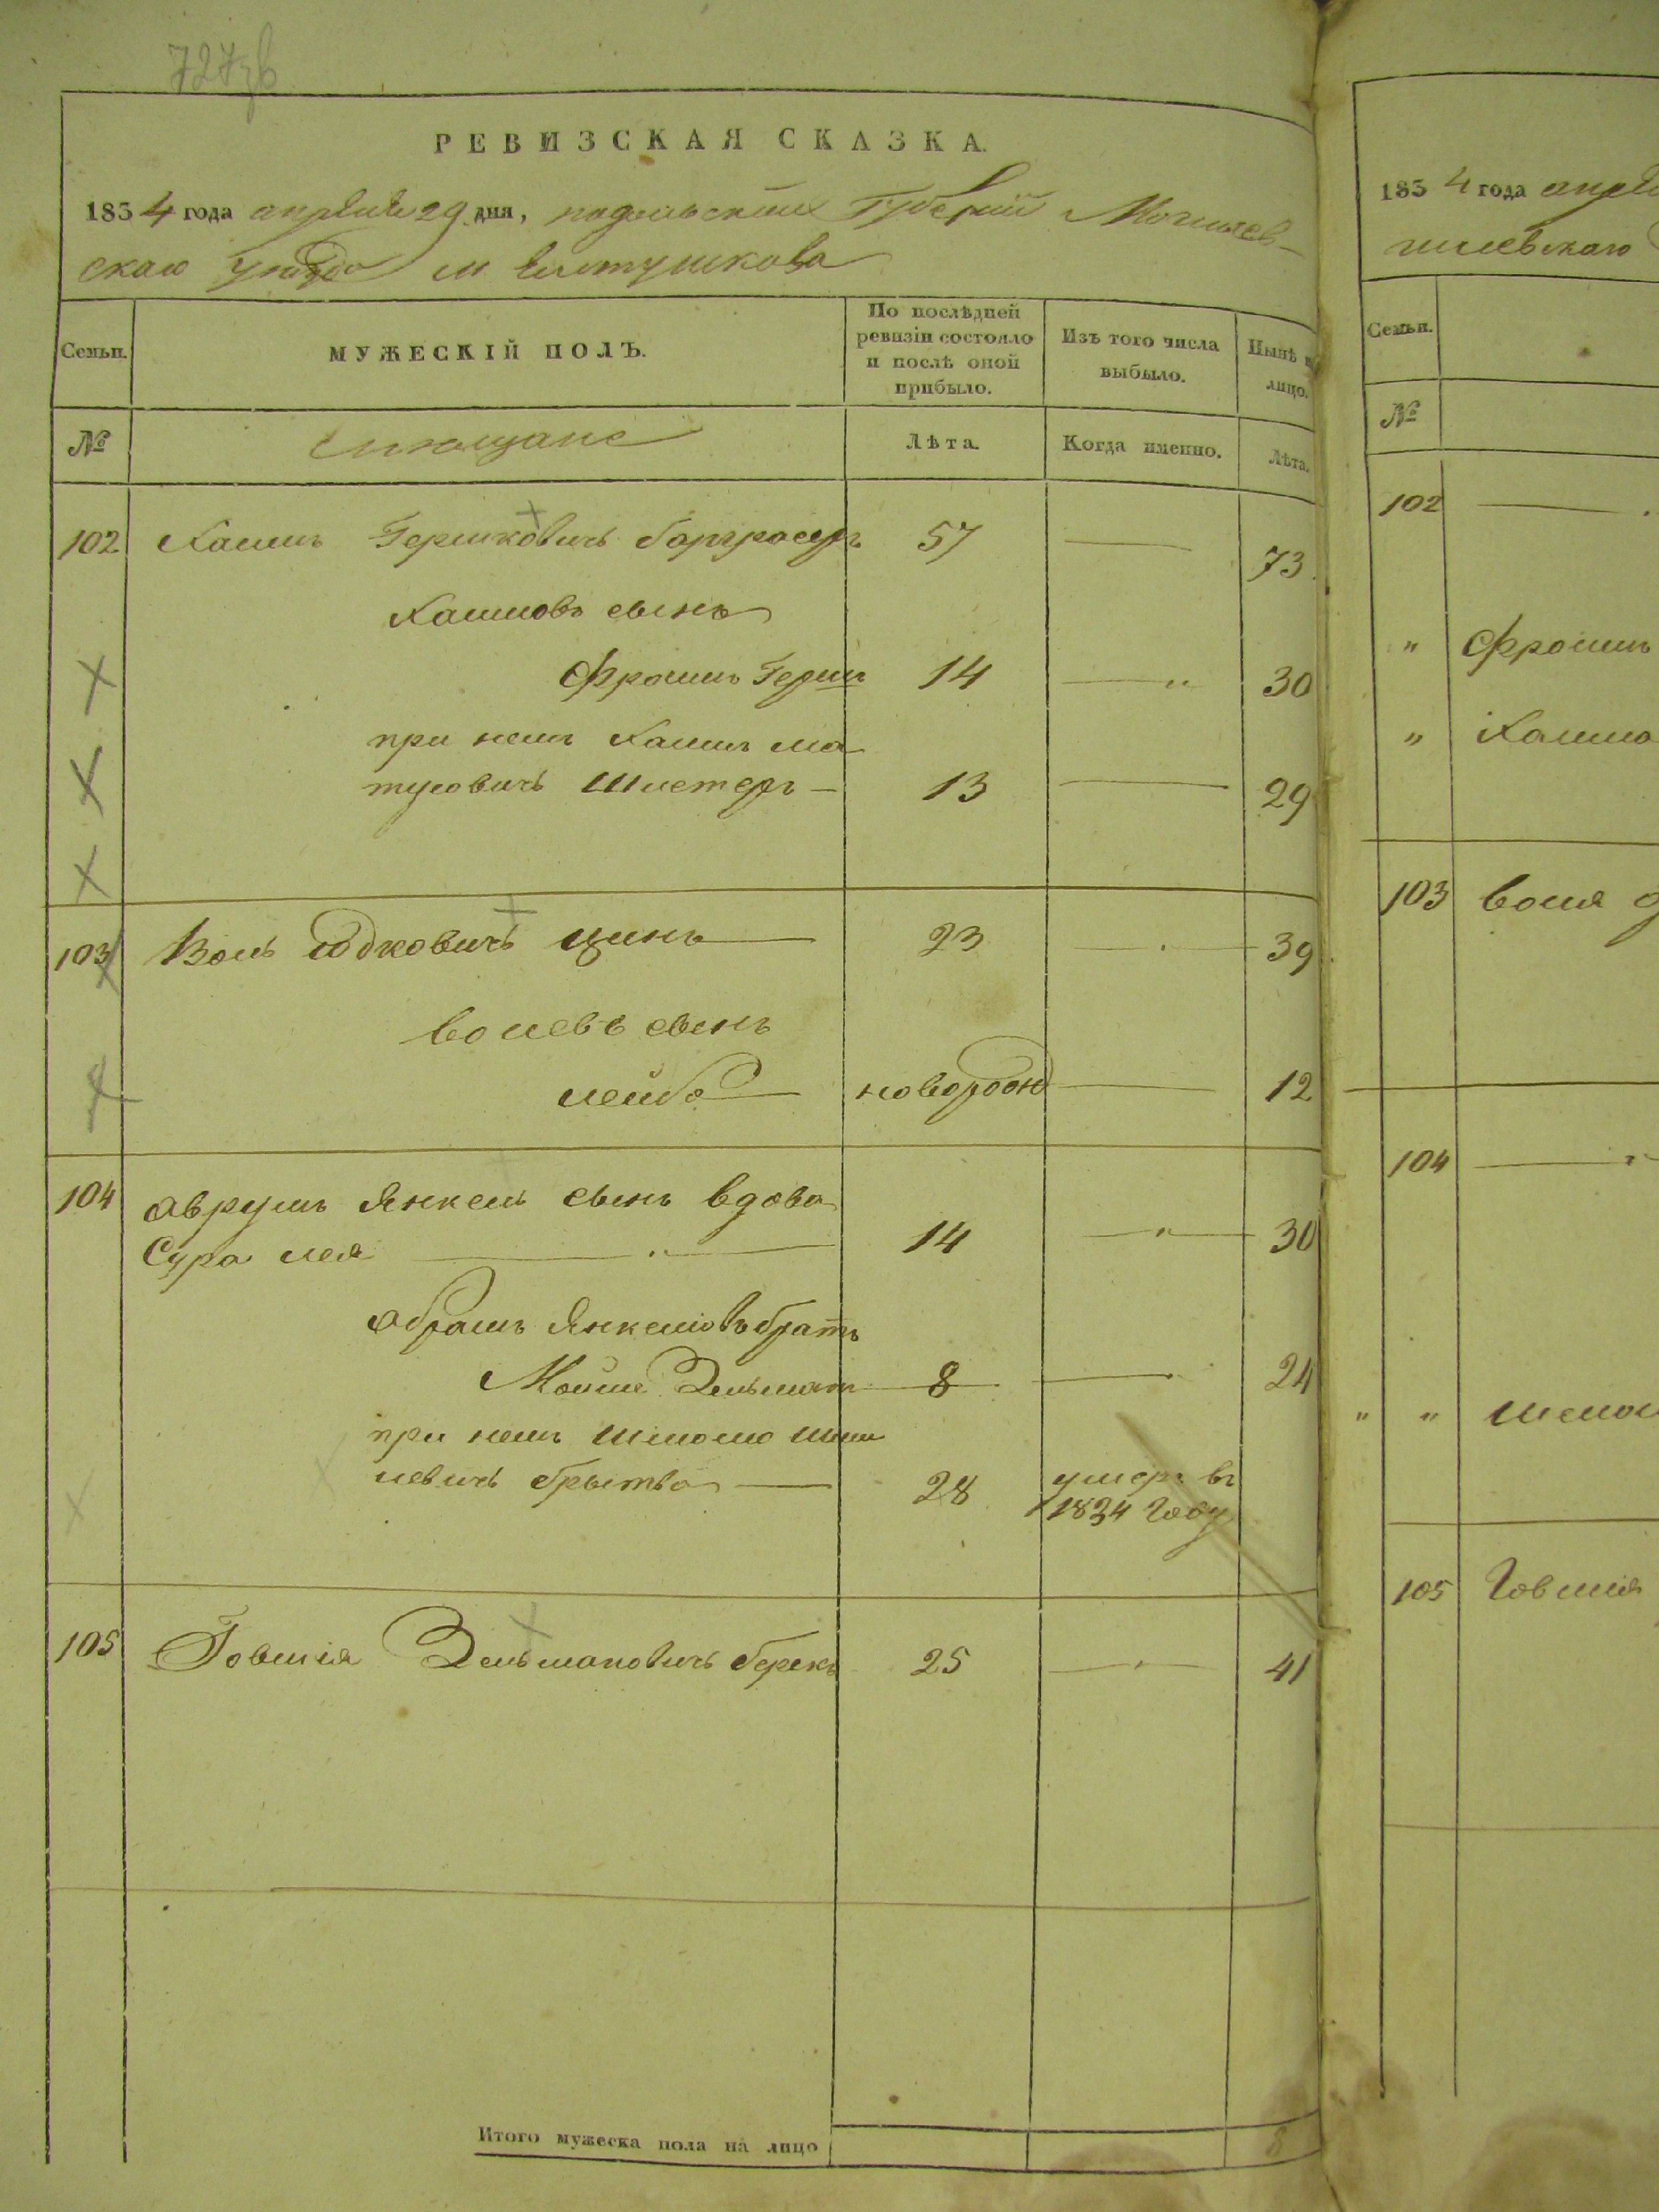 727 зв
РЕВИЗСКАЯ СКАЗКА.
1854 года апреля 29 дня, подольской Губернии Могилев-
скаго уезда м Елтушкова
Семьи.
МУЖЕСКІЙ ПОЛЪ.
По послѣдней ревизіи состояло и послѣ оной прибыло.
Изъ того числа выбыло.
Нынѣ на лицо.
№
мещане
Лѣта.
Когда именно.
Лѣта.
102 Хаимъ Гершковичъ 57 — 73
Хаимовъ сынъ
Фроимъ Герш 14 — " 30
при немъ Хаимъ Ма
тусовичъ Шметеръ — 13 — 29
103 Волъ Юдковичъ Цинъ — 23 — 39
Волевъ сынъ
Лейба — новорожд — 12
104 Аврумъ Янкель сынъ вдова
Сура Лея — " — 14 — " — 30
Абрамъ Янкелювъ братъ
Мойше Зельман 8 — 24
при немъ Шмомо
левичъ Брытва — 28 умеръ въ
1834 Году
105 Говшія Зельмановичъ Берекъ 25 — " — 41
Итого мужеска пола на лицо 8
1854 года апре
гилевскаго
Семьи.
№
102 —
" Фроимъ
" Хаима
103 Воля
104 —
" "
105 Говшія